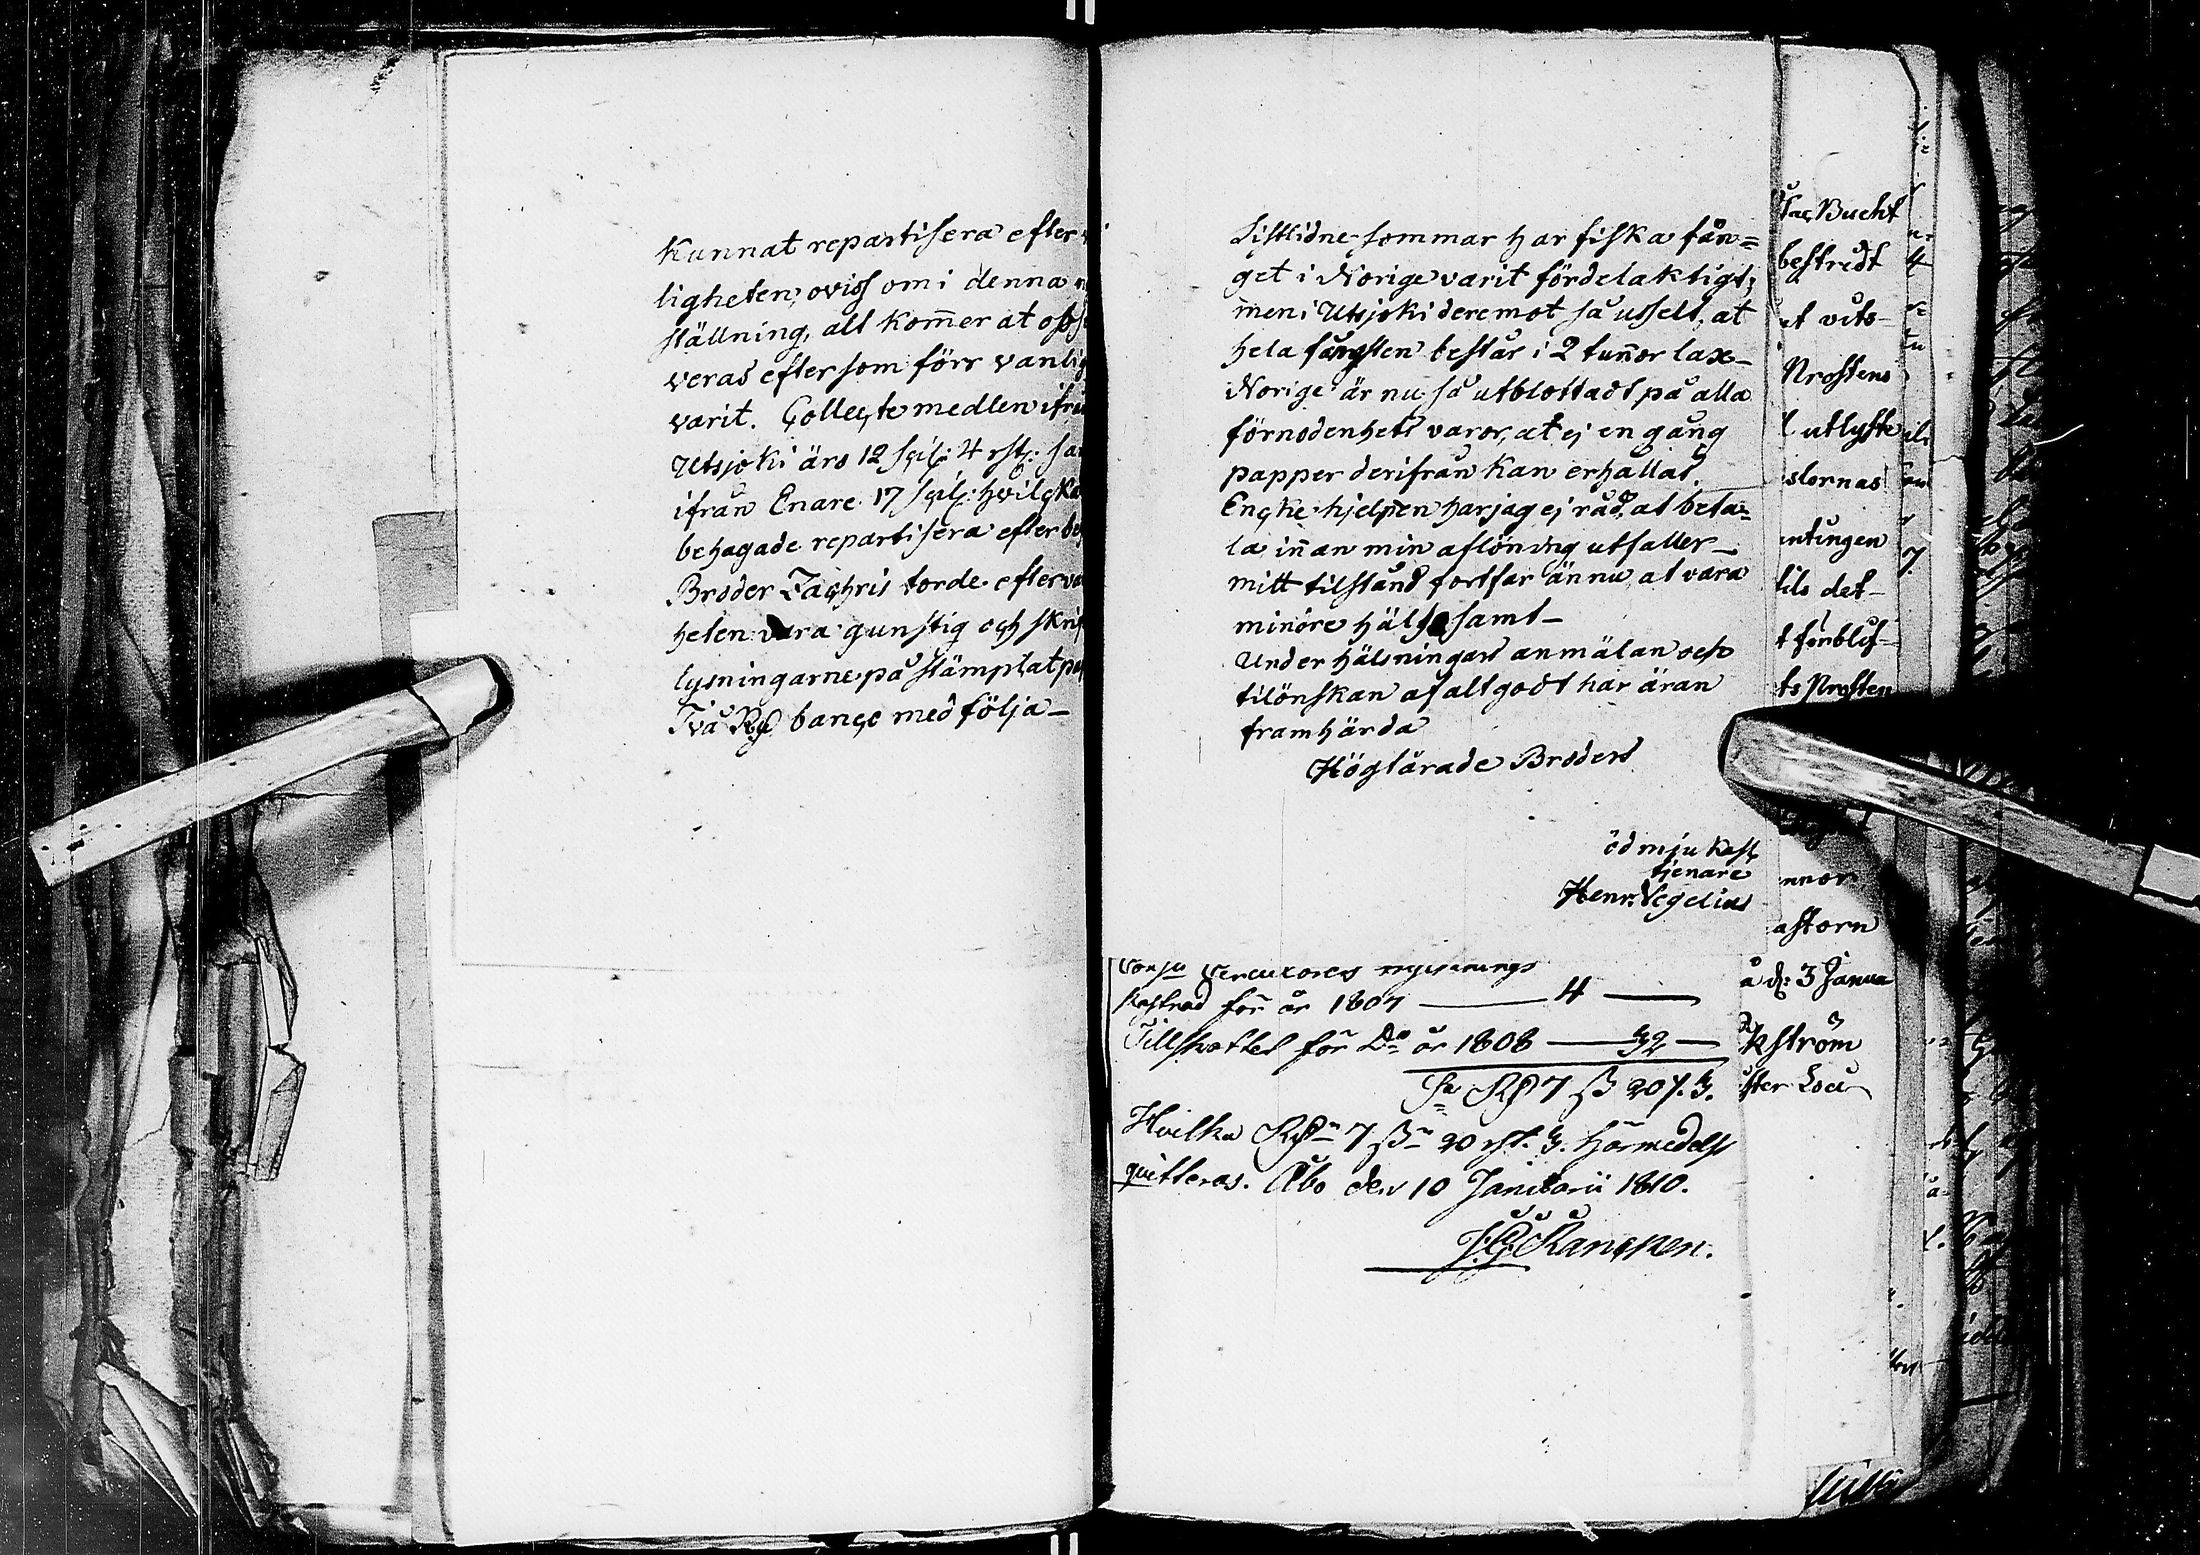 Kunnat repartisera efter
ligheten, oviss om i denna
ställning, alt kom̄er at obse
veras efter som förr vanlig
varit. Collecte medlen ifrån
Utsjoki äro 12 sçil: 4 rst: sa
ifrån Enare 17 sçil: hvilcka
behagade repartisera efter be
Broder Zachris torde efter va
heten vara gunstig och skrif
lysningarne på stämplat pa
Två Rd banco medfölja –
Sistlidne sommar har fiska fån=
get i Norige varit fördelaktigt;
men i Utsjoki deremot så usselt, at
hela fångsten består i 2 tun̄or lax –
Norige är nu så utblottadt på alla
förnodenhets varor, at ej en gång
papper derifrån kan erhållas.
Encke hjelpen har jag ej råd at beta=
la in̄an min aflöning utfaller –
mitt tilstånd fortfar ännu at vara
mindre hälsosamt –
Under hälsningars anmälan och
tilönskan af alt godt har äran
framhärda
Höglärade Broders
ödmjukast
tjenare
Henr. Wegelius
kostnad för år 1807 — 4 —
Tillskottet för Do år 1808 — 32 —
Sa Rd 7 ß 20 r. 3.
Hvilka Rd 7 ß 20 rst. 3. härmedelst
quitteras. Åbo den 10 Januarii 1810.
J. G. Rancken.
Jac Bucht
bestredt
et vits-
Prostens
utlyste
slornas
antingen
tils det-
t förblif-
ts Prosten
nnor
astorn
å d: 3 Janua
kström